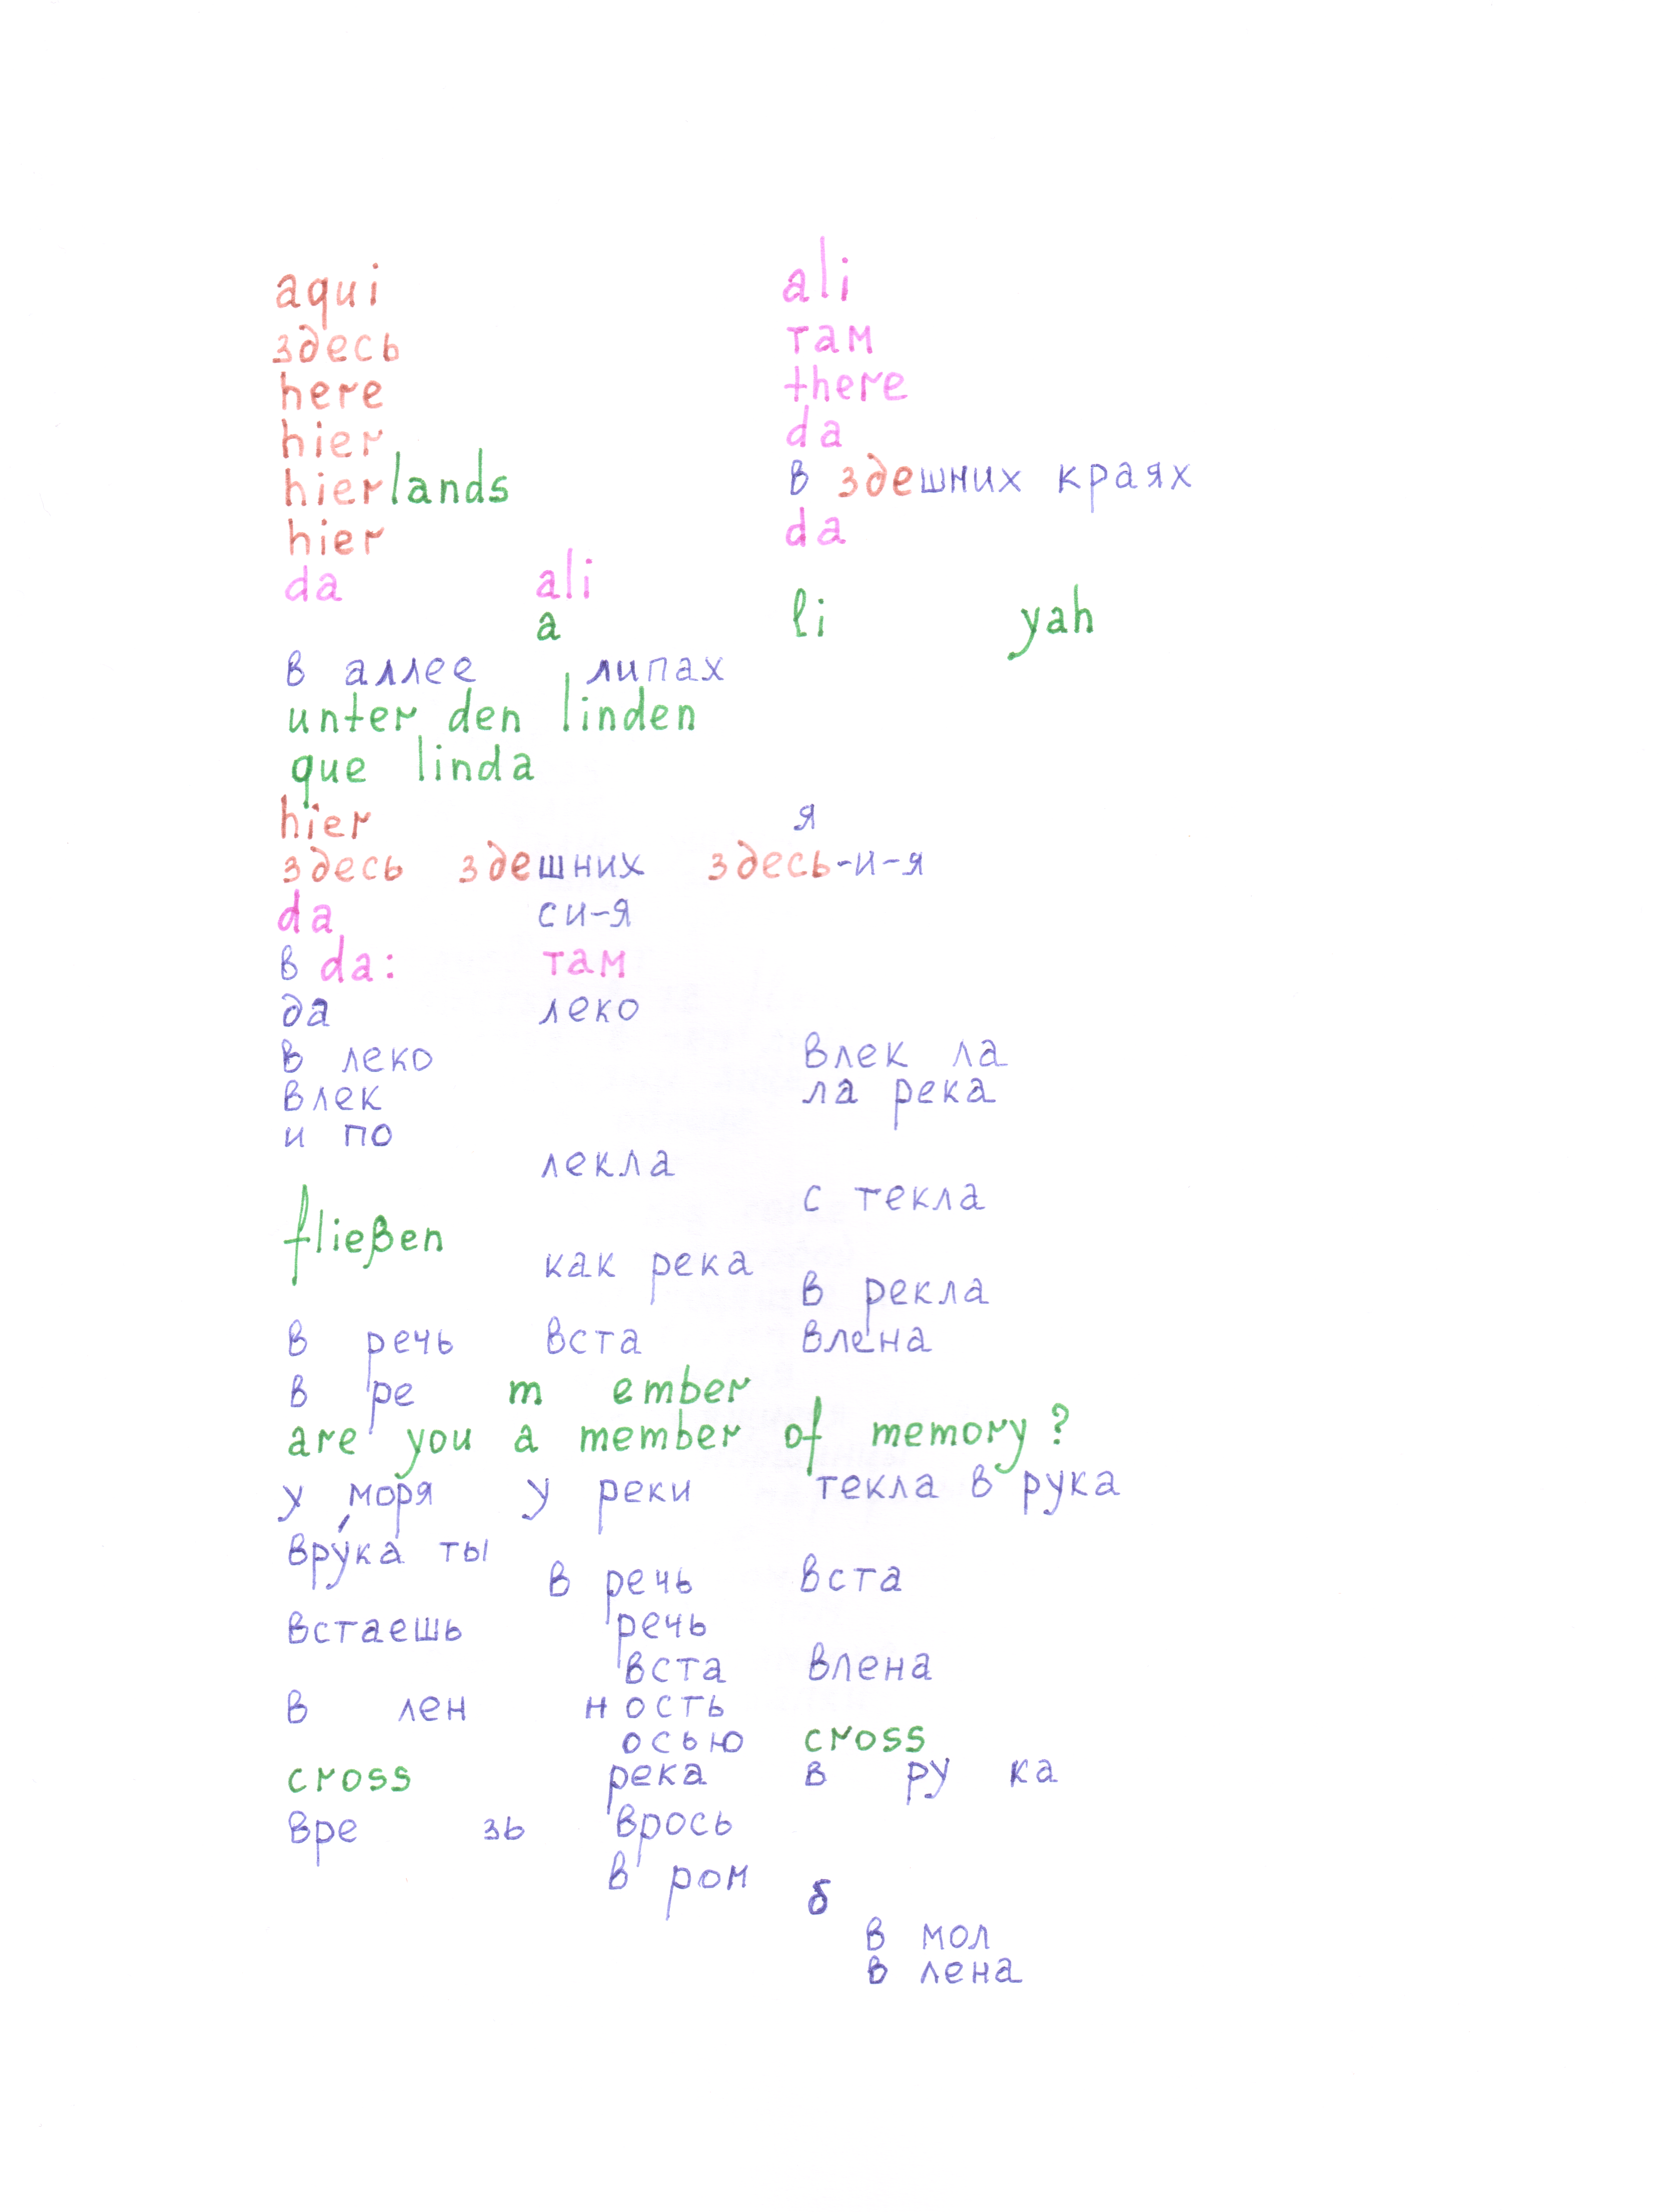 aqui ali
здесь там
here there
hier da
hierlands в здешних краях
hier da
da ali
a li yah
в аллее липах
unter den linden
que linda
hier я
здесь здешних здесь-и-я
da си-я
в da: там
да леко
в леко влек ла
влек ла река
и по
лекла
с текла
fließen
как река
в рекла
в речь вста влена
в ре m ember
are you a member of memory?
у моря у реки текла в рука
вру́ка ты
в речь вста
встаешь речь
вста влена
в лен ность
осью cross
cross река в ру ка
вре зь врось
в ром б
в мол
в лена